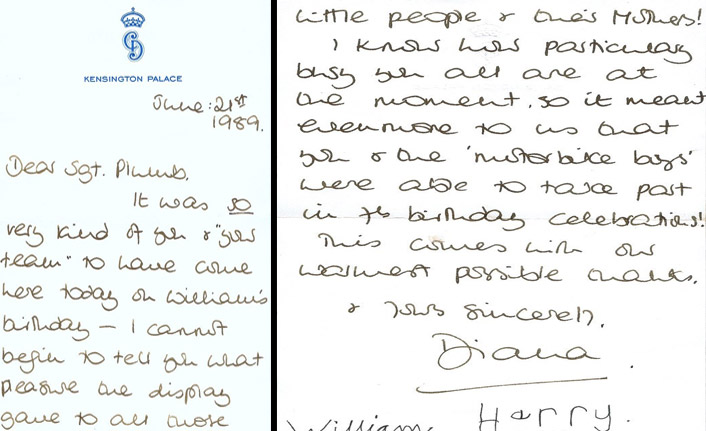 KENSINGTON PALACE
June: 21st
1989.
Dear Sgt. Plumb,
It was so
very kind of you & "your
team" to have come
here today on William's
birthday – I cannot
begin to tell you what
pleasure the display
gave to all those
little people & the's Mothers!
I know how particularly
busy you all are at
the moment, so it meant
even more to us that
you & the 'motorbike boys'
were able to take part
in the birthday celebrations!
This comes with our
warmest possible thanks.
& Yours sincerely,
Diana.
William. Harry.